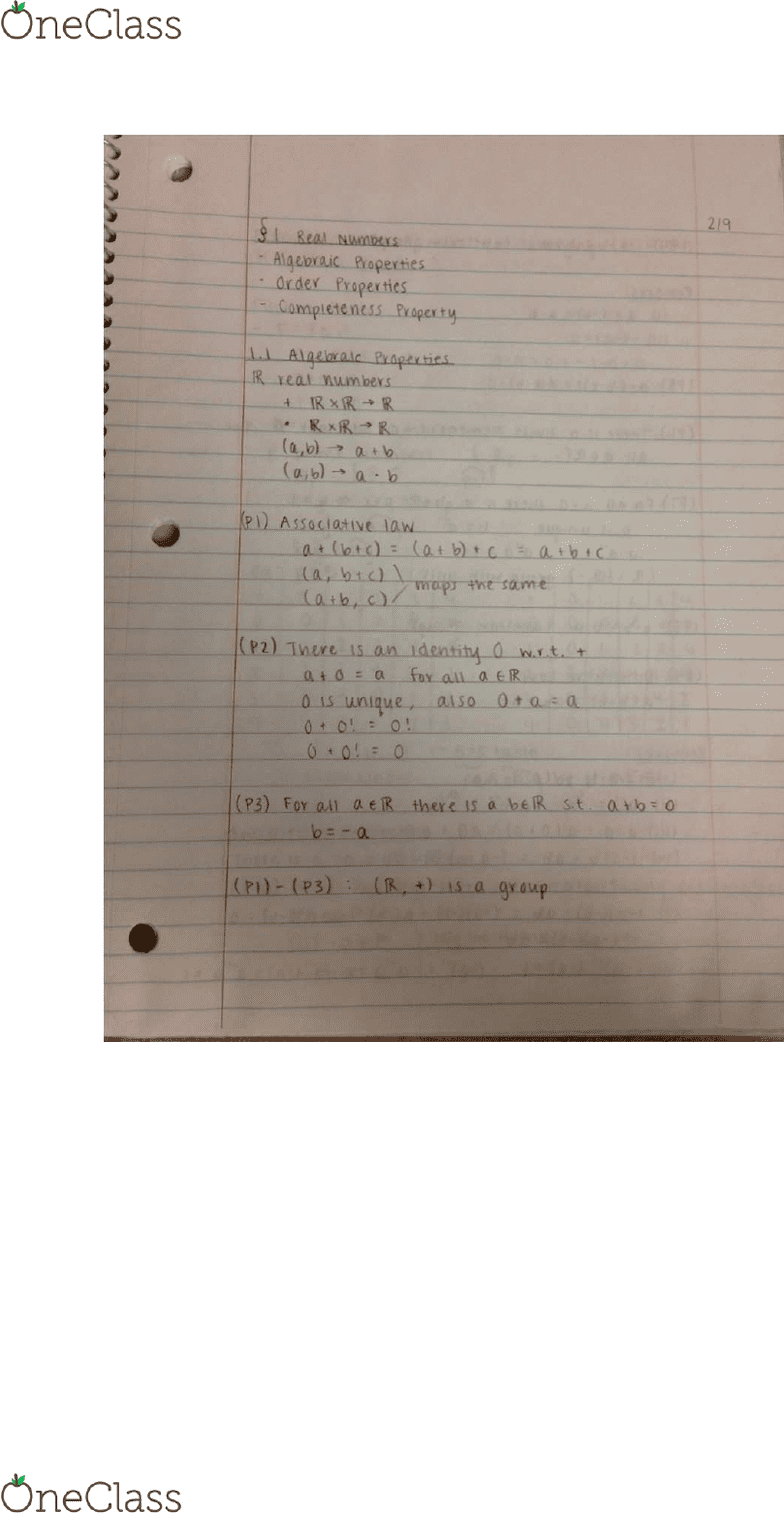 OneClass
2/9
§ 1 Real Numbers
- Algebraic Properties
- Order Properties
- Completeness Property
1.1 Algebraic Properties
ℝ real numbers
+ ℝ×ℝ → ℝ
• ℝ×ℝ → ℝ
(a,b) → a + b
(a,b) → a · b
(P1) Associative law
a + (b+c) = (a+b) + c = a+b+c
(a, b+c) \
maps the same
(a+b, c) /
(P2) There is an identity 0 w.r.t. +
a + 0 = a for all a ∈ ℝ
0 is unique, also 0 + a = a
0 + 0! = 0!
0 + 0! = 0
(P3) For all a ∈ ℝ there is a b ∈ ℝ s.t. a+b = 0
b = -a
(P1) - (P3) : (ℝ, +) is a group
OneClass